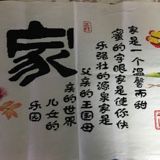 家
家是一个温馨而甜
蜜的字眼家是使你快
乐强壮的源泉家是
父亲的王国母
亲的世界
儿女的
乐园